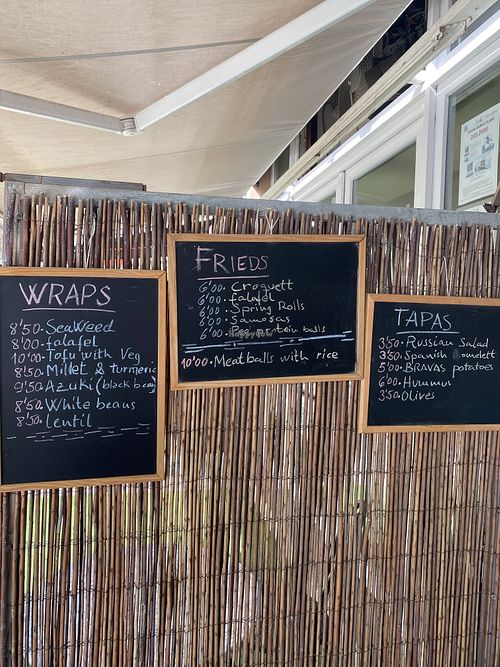 WRAPS
8'50. SeaWeed
8'00. falafel
10'00. Tofu with Veg
8'50. Millet & turmeric
9'50. Azuki (black bean)
8'50. White beans
8'50. lentil
FRIEDS
6'00. Croquett
6'00. falafel
6'00. Spring Rolls
6'00. Samosas
6'00. Pea protein balls
10'00. Meatballs with rice
TAPAS
3'50. Russian Salad
3'50. Spanish omelett
5'00. BRAVAS potatoes
6'00. Hummus
3'50. Olives